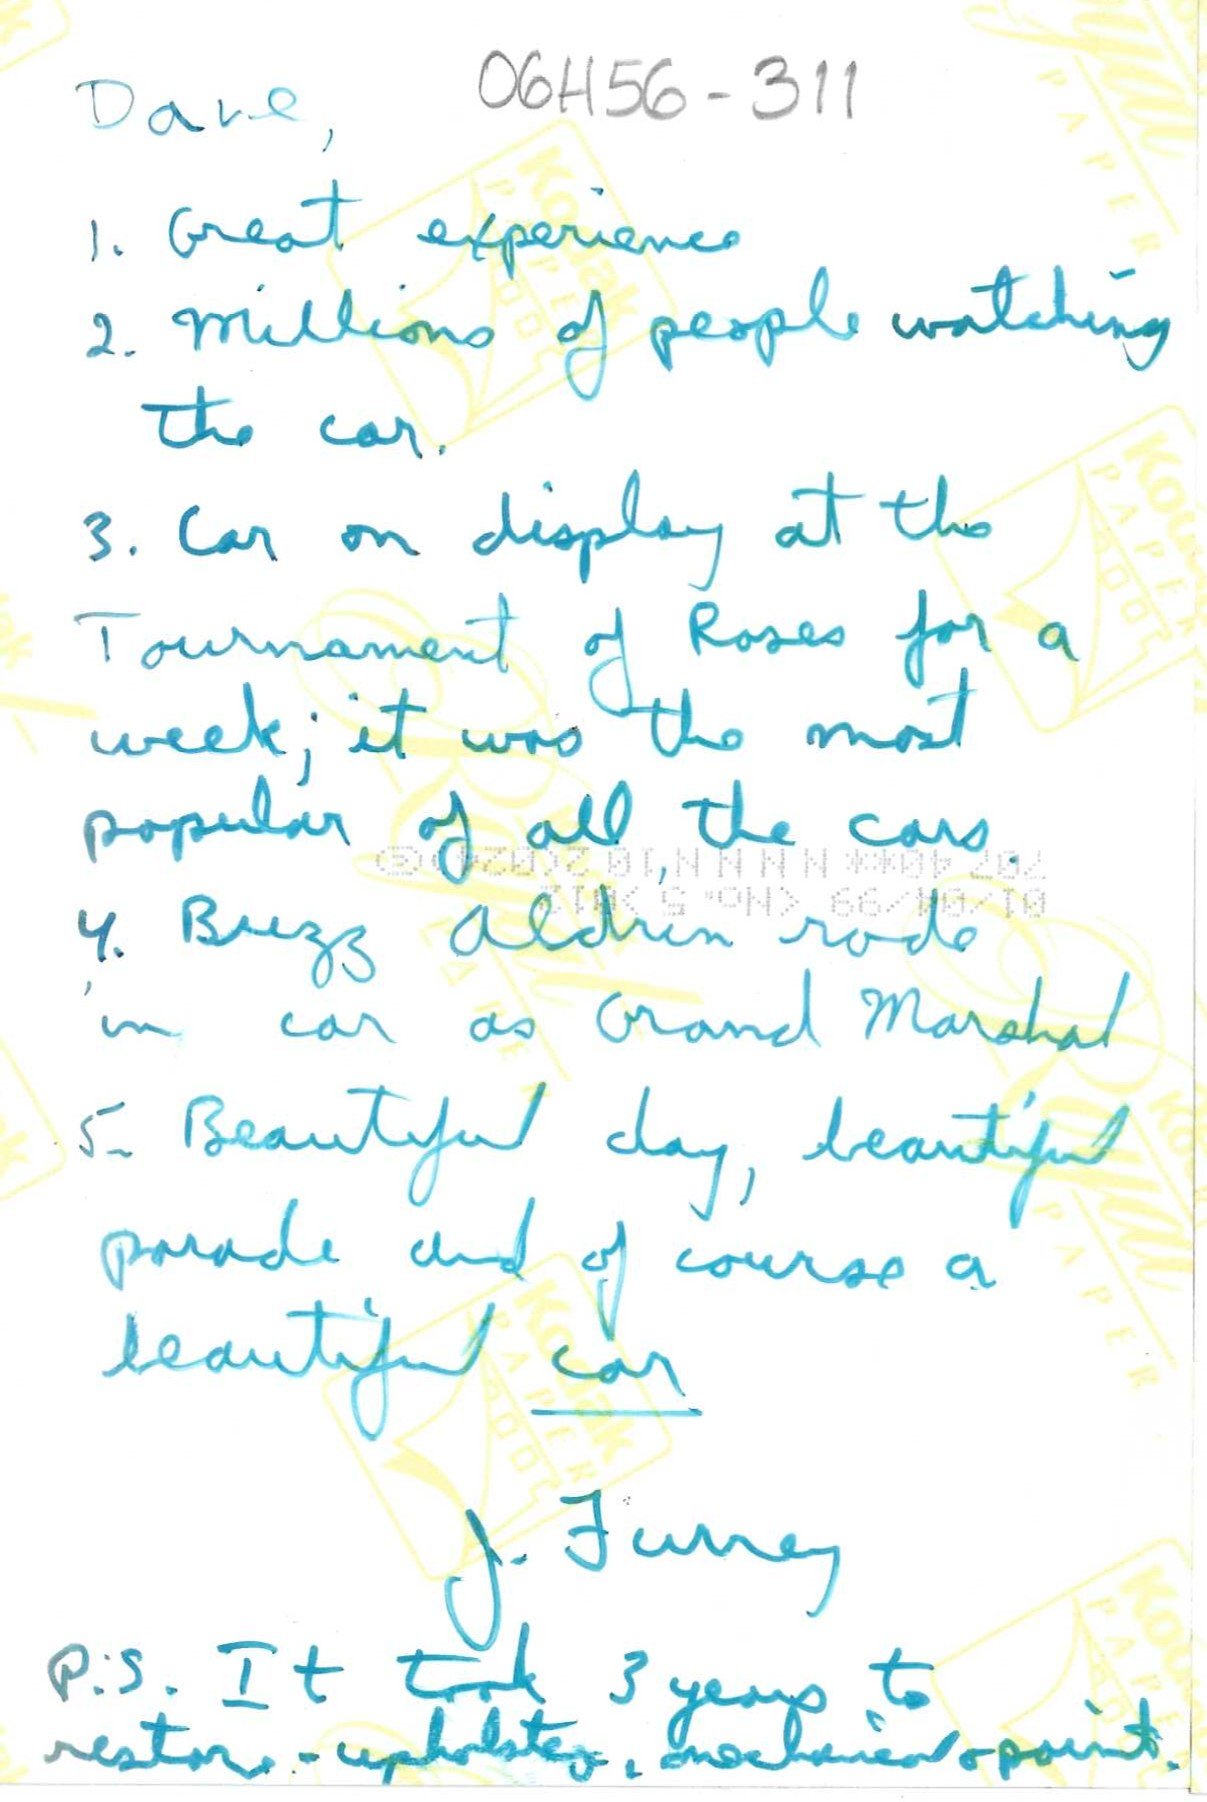 Dave,
06H56-311
1. Great experience
2. Millions of people watching
the car.
3. Car on display at the
Tournament of Roses for a
week; it was the most
popular of all the cars.
4. Buzz Aldrin rode
in car as Grand Marshal
5. Beautiful day, beautiful
parade and of course a
beautiful car
J. Furrey
P.S. It took 3 years to
restore - upholstery, mechanical & paint.
Kodak
PAPER